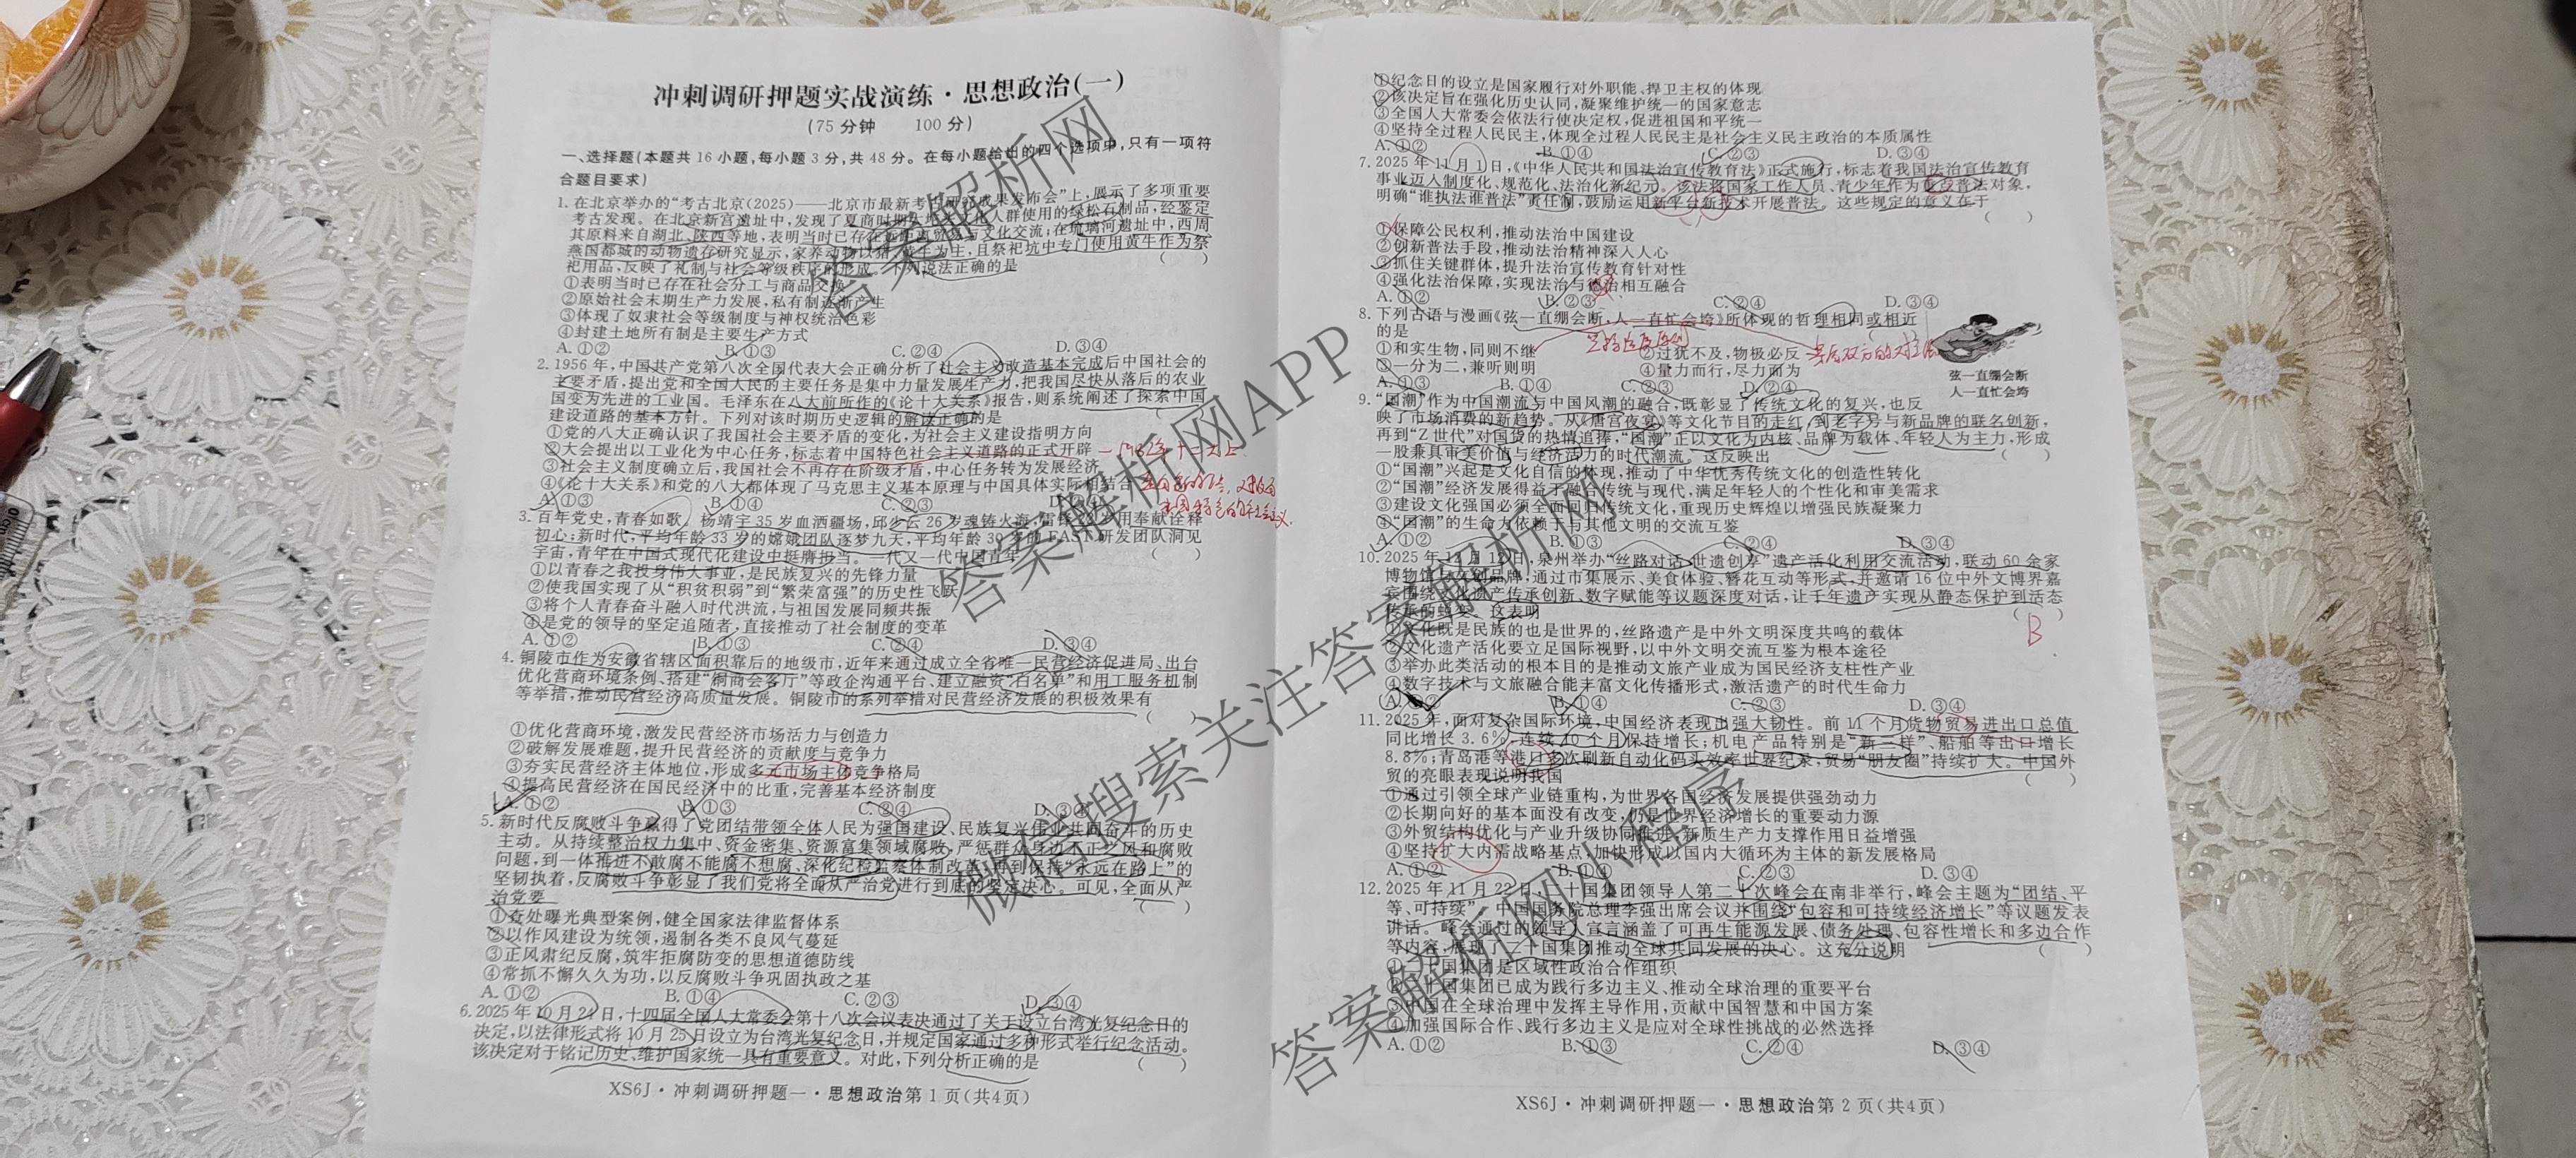 冲刺调研押题实战演练·思想政治(一)
(75分钟 100分)
一、选择题(本题共16小题,每小题3分,共48分。在每小题给出的四个选项中,只有一项符
合题目要求)
1.在北京举办的“考古北京(2025)——北京市最新考 成果发布会”上,展示了多项重要
考古发现。在北京新宫遗址中,发现了夏商时期 文化人群使用的绿松石制品,经鉴定
其原料来自湖北、陕西等地,表明当时已存在 贸易与文化交流;在琉璃河遗址中,西周
燕国都城的动物遗存研究显示,家养动物以猪、黄牛为主,且祭祀坑中专门使用黄牛作为祭
祀用品,反映了礼制与社会等级秩序的形成。下列说法正确的是 ( )
①表明当时已存在社会分工与商品交换
②原始社会末期生产力发展,私有制逐渐产生
③体现了奴隶社会等级制度与神权统治色彩
④封建土地所有制是主要生产方式
A.①② B.①③ C.②④ D.③④
2.1956年,中国共产党第八次全国代表大会正确分析了社会主义改造基本完成后中国社会的
主要矛盾,提出党和全国人民的主要任务是集中力量发展生产力,把我国尽快从落后的农业
国变为先进的工业国。毛泽东在八大前所作的《论十大关系》报告,则系统阐述了探索中国
建设道路的基本方针。下列对该时期历史逻辑的解读正确的是 ( )
①党的八大正确认识了我国社会主要矛盾的变化,为社会主义建设指明方向
②大会提出以工业化为中心任务,标志着中国特色社会主义道路的正式开辟 — 1982年十二大上
③社会主义制度确立后,我国社会不再存在阶级矛盾,中心任务转为发展经济
④《论十大关系》和党的八大都体现了马克思主义基本原理与中国具体实际相结合
A.①③ B.①④ C.②③ D.②④
3.百年党史,青春如歌。杨靖宇35岁血洒疆场,邱少云26岁魂铸火海,雷锋22岁用奉献诠释
初心;新时代,平均年龄33岁的嫦娥团队逐梦九天,平均年龄30岁的FAST研发团队洞见
宇宙,青年在中国式现代化建设中挺膺担当。一代又一代中国青年 ( )
①以青春之我投身伟大事业,是民族复兴的先锋力量
②使我国实现了从“积贫积弱”到“繁荣富强”的历史性飞跃
③将个人青春奋斗融入时代洪流,与祖国发展同频共振
④是党的领导的坚定追随者,直接推动了社会制度的变革
A.①② B.①③ C.②④ D.③④
4.铜陵市作为安徽省辖区面积靠后的地级市,近年来通过成立全省唯一民营经济促进局、出台
优化营商环境条例、搭建“铜商会客厅”等政企沟通平台、建立融资“白名单”和用工服务机制
等举措,推动民营经济高质量发展。铜陵市的系列举措对民营经济发展的积极效果有
( )
①优化营商环境,激发民营经济市场活力与创造力
②破解发展难题,提升民营经济的贡献度与竞争力
③夯实民营经济主体地位,形成多元市场主体竞争格局
④提高民营经济在国民经济中的比重,完善基本经济制度
A.①② B.①③ C.②④ D.③④
5.新时代反腐败斗争赢得了党团结带领全体人民为强国建设、民族复兴伟业共同奋斗的历史
主动。从持续整治权力集中、资金密集、资源富集领域腐败,严惩群众身边不正之风和腐败
问题,到一体推进不敢腐不能腐不想腐、深化纪检监察体制改革,再到保持“永远在路上”的
坚韧执着,反腐败斗争彰显了我们党将全面从严治党进行到底的坚定决心。可见,全面从严
治党要 ( )
①查处曝光典型案例,健全国家法律监督体系
②以作风建设为统领,遏制各类不良风气蔓延
③正风肃纪反腐,筑牢拒腐防变的思想道德防线
④常抓不懈久久为功,以反腐败斗争巩固执政之基
A.①② B.①④ C.②③ D.③④
6.2025年10月24日,十四届全国人大常委会第十八次会议表决通过了关于设立台湾光复纪念日的
决定,以法律形式将10月25日设立为台湾光复纪念日,并规定国家通过多种形式举行纪念活动。
该决定对于铭记历史、维护国家统一具有重要意义。对此,下列分析正确的是 ( )
XS6J·冲刺调研押题一·思想政治第1页(共4页)
①纪念日的设立是国家履行对外职能、捍卫主权的体现
②该决定旨在强化历史认同,凝聚维护统一的国家意志
③全国人大常委会依法行使决定权,促进祖国和平统一
④坚持全过程人民民主,体现全过程人民民主是社会主义民主政治的本质属性
A.①② B.①④ C.②③ D.③④
7.2025年11月1日,《中华人民共和国法治宣传教育法》正式施行,标志着我国法治宣传教育
事业迈入制度化、规范化、法治化新纪元。该法将国家工作人员、青少年作为重点普法对象,
明确“谁执法谁普法”责任制,鼓励运用新平台新技术开展普法。这些规定的意义在于
( )
①保障公民权利,推动法治中国建设
②创新普法手段,推动法治精神深入人心
③抓住关键群体,提升法治宣传教育针对性
④强化法治保障,实现法治与德治相互融合
A.①② B.②③ C.②④ D.③④
8.下列古语与漫画《弦一直绷会断,人一直忙会垮》所体现的哲理相同或相近
的是
①和实生物,同则不继 ②过犹不及,物极必反
③一分为二,兼听则明 ④量力而行,尽力而为
A.①③ B.①④ C.②③ D.②④
弦一直绷会断
人一直忙会垮
9.“国潮”作为中国潮流与中国风潮的融合,既彰显了传统文化的复兴,也反
映了市场消费的新趋势。从《唐宫夜宴》等文化节目的走红,到老字号与新品牌的联名创新,
再到“Z世代”对国货的热情追捧,“国潮”正以文化为内核、品牌为载体、年轻人为主力,形成
一股兼具审美价值与经济活力的时代潮流。这反映出 ( )
①“国潮”兴起是文化自信的体现,推动了中华优秀传统文化的创造性转化
②“国潮”经济发展得益于融合传统与现代,满足年轻人的个性化和审美需求
③建设文化强国必须全面回归传统文化,重现历史辉煌以增强民族凝聚力
④“国潮”的生命力依赖于与其他文明的交流互鉴
A.①② B.①③ C.②④ D.③④
10.2025年11月12日,泉州举办“丝路对话·世遗创享”遗产活化利用交流活动,联动60余家
博物馆与文创品牌,通过市集展示、美食体验、簪花互动等形式,并邀请16位中外文博界嘉
宾围绕文化遗产传承创新、数字赋能等议题深度对话,让千年遗产实现从静态保护到活态
传承的蜕变。这表明 ( )
B
①文化既是民族的也是世界的,丝路遗产是中外文明深度共鸣的载体
②文化遗产活化要立足国际视野,以中外文明交流互鉴为根本途径
③举办此类活动的根本目的是推动文旅产业成为国民经济支柱性产业
④数字技术与文旅融合能丰富文化传播形式,激活遗产的时代生命力
A.①② B.①④ C.②③ D.③④
11.2025年,面对复杂国际环境,中国经济表现出强大韧性。前11个月货物贸易进出口总值
同比增长3.6%,连续10个月保持增长;机电产品特别是“新三样”、船舶等出口增长
8.8%;青岛港等港口多次刷新自动化码头效率世界纪录,贸易“朋友圈”持续扩大。中国外
贸的亮眼表现说明我国 ( )
①通过引领全球产业链重构,为世界各国经济发展提供强劲动力
②长期向好的基本面没有改变,仍是世界经济增长的重要动力源
③外贸结构优化与产业升级协同推进,新质生产力支撑作用日益增强
④坚持扩大内需战略基点,加快形成以国内大循环为主体的新发展格局
A.①② B.①④ C.②③ D.③④
12.2025年11月22日,二十国集团领导人第二十次峰会在南非举行,峰会主题为“团结、平
等、可持续”。中国国务院总理李强出席会议并围绕“包容和可持续经济增长”等议题发表
讲话。峰会通过的领导人宣言涵盖了可再生能源发展、债务处理、包容性增长和多边合作
等内容,展现了二十国集团推动全球共同发展的决心。这充分说明 ( )
①二十国集团是区域性政治合作组织
②二十国集团已成为践行多边主义、推动全球治理的重要平台
③中国在全球治理中发挥主导作用,贡献中国智慧和中国方案
④加强国际合作、践行多边主义是应对全球性挑战的必然选择
A.①② B.①③ C.②④ D.③④
XS6J·冲刺调研押题一·思想政治第2页(共4页)
答案解析网
答案解析网APP
微信搜索关注答案解析网
答案解析网小程序